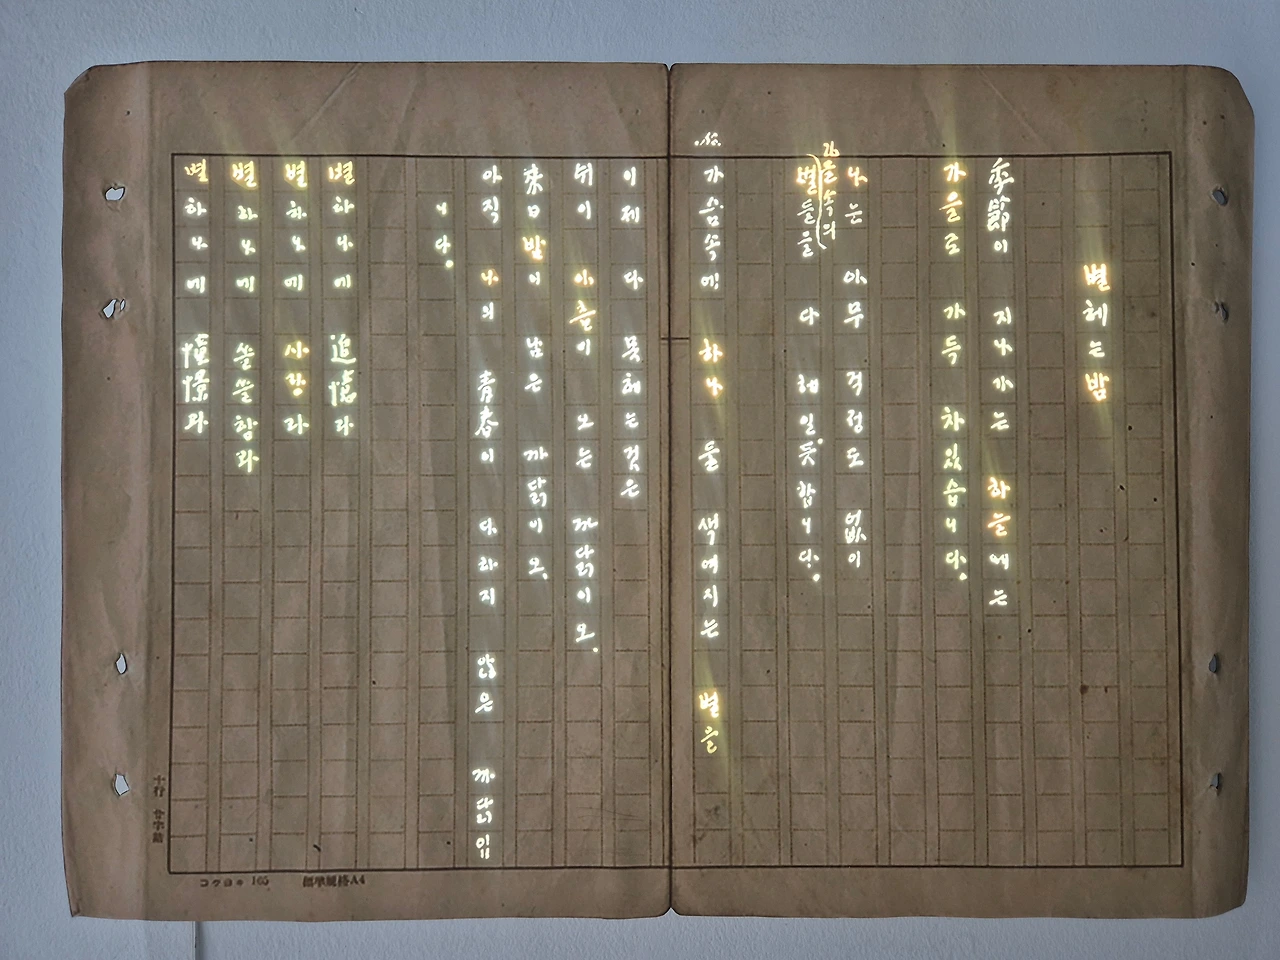 별헤는밤
季節이 지나가는 하늘에는
가을로 가득 차있습니다.
나는 아무 걱정도 없이
가을속의
별들을 다 헤일듯합니다.
가슴속에 하나 둘 색여지는 별을
이제 다 못헤는것은
쉬이 아츰이 오는 까닭이오.
來日밤이 남은 까닭이오.
아직 나의 靑春이 다하지 않은 까닭입
니다.
별하나에 追憶과
별하나에 사랑과
별하나에 쓸쓸함과
별하나에 憧憬과
十行 廿字詰
コクヨキ 165 標準規格A4